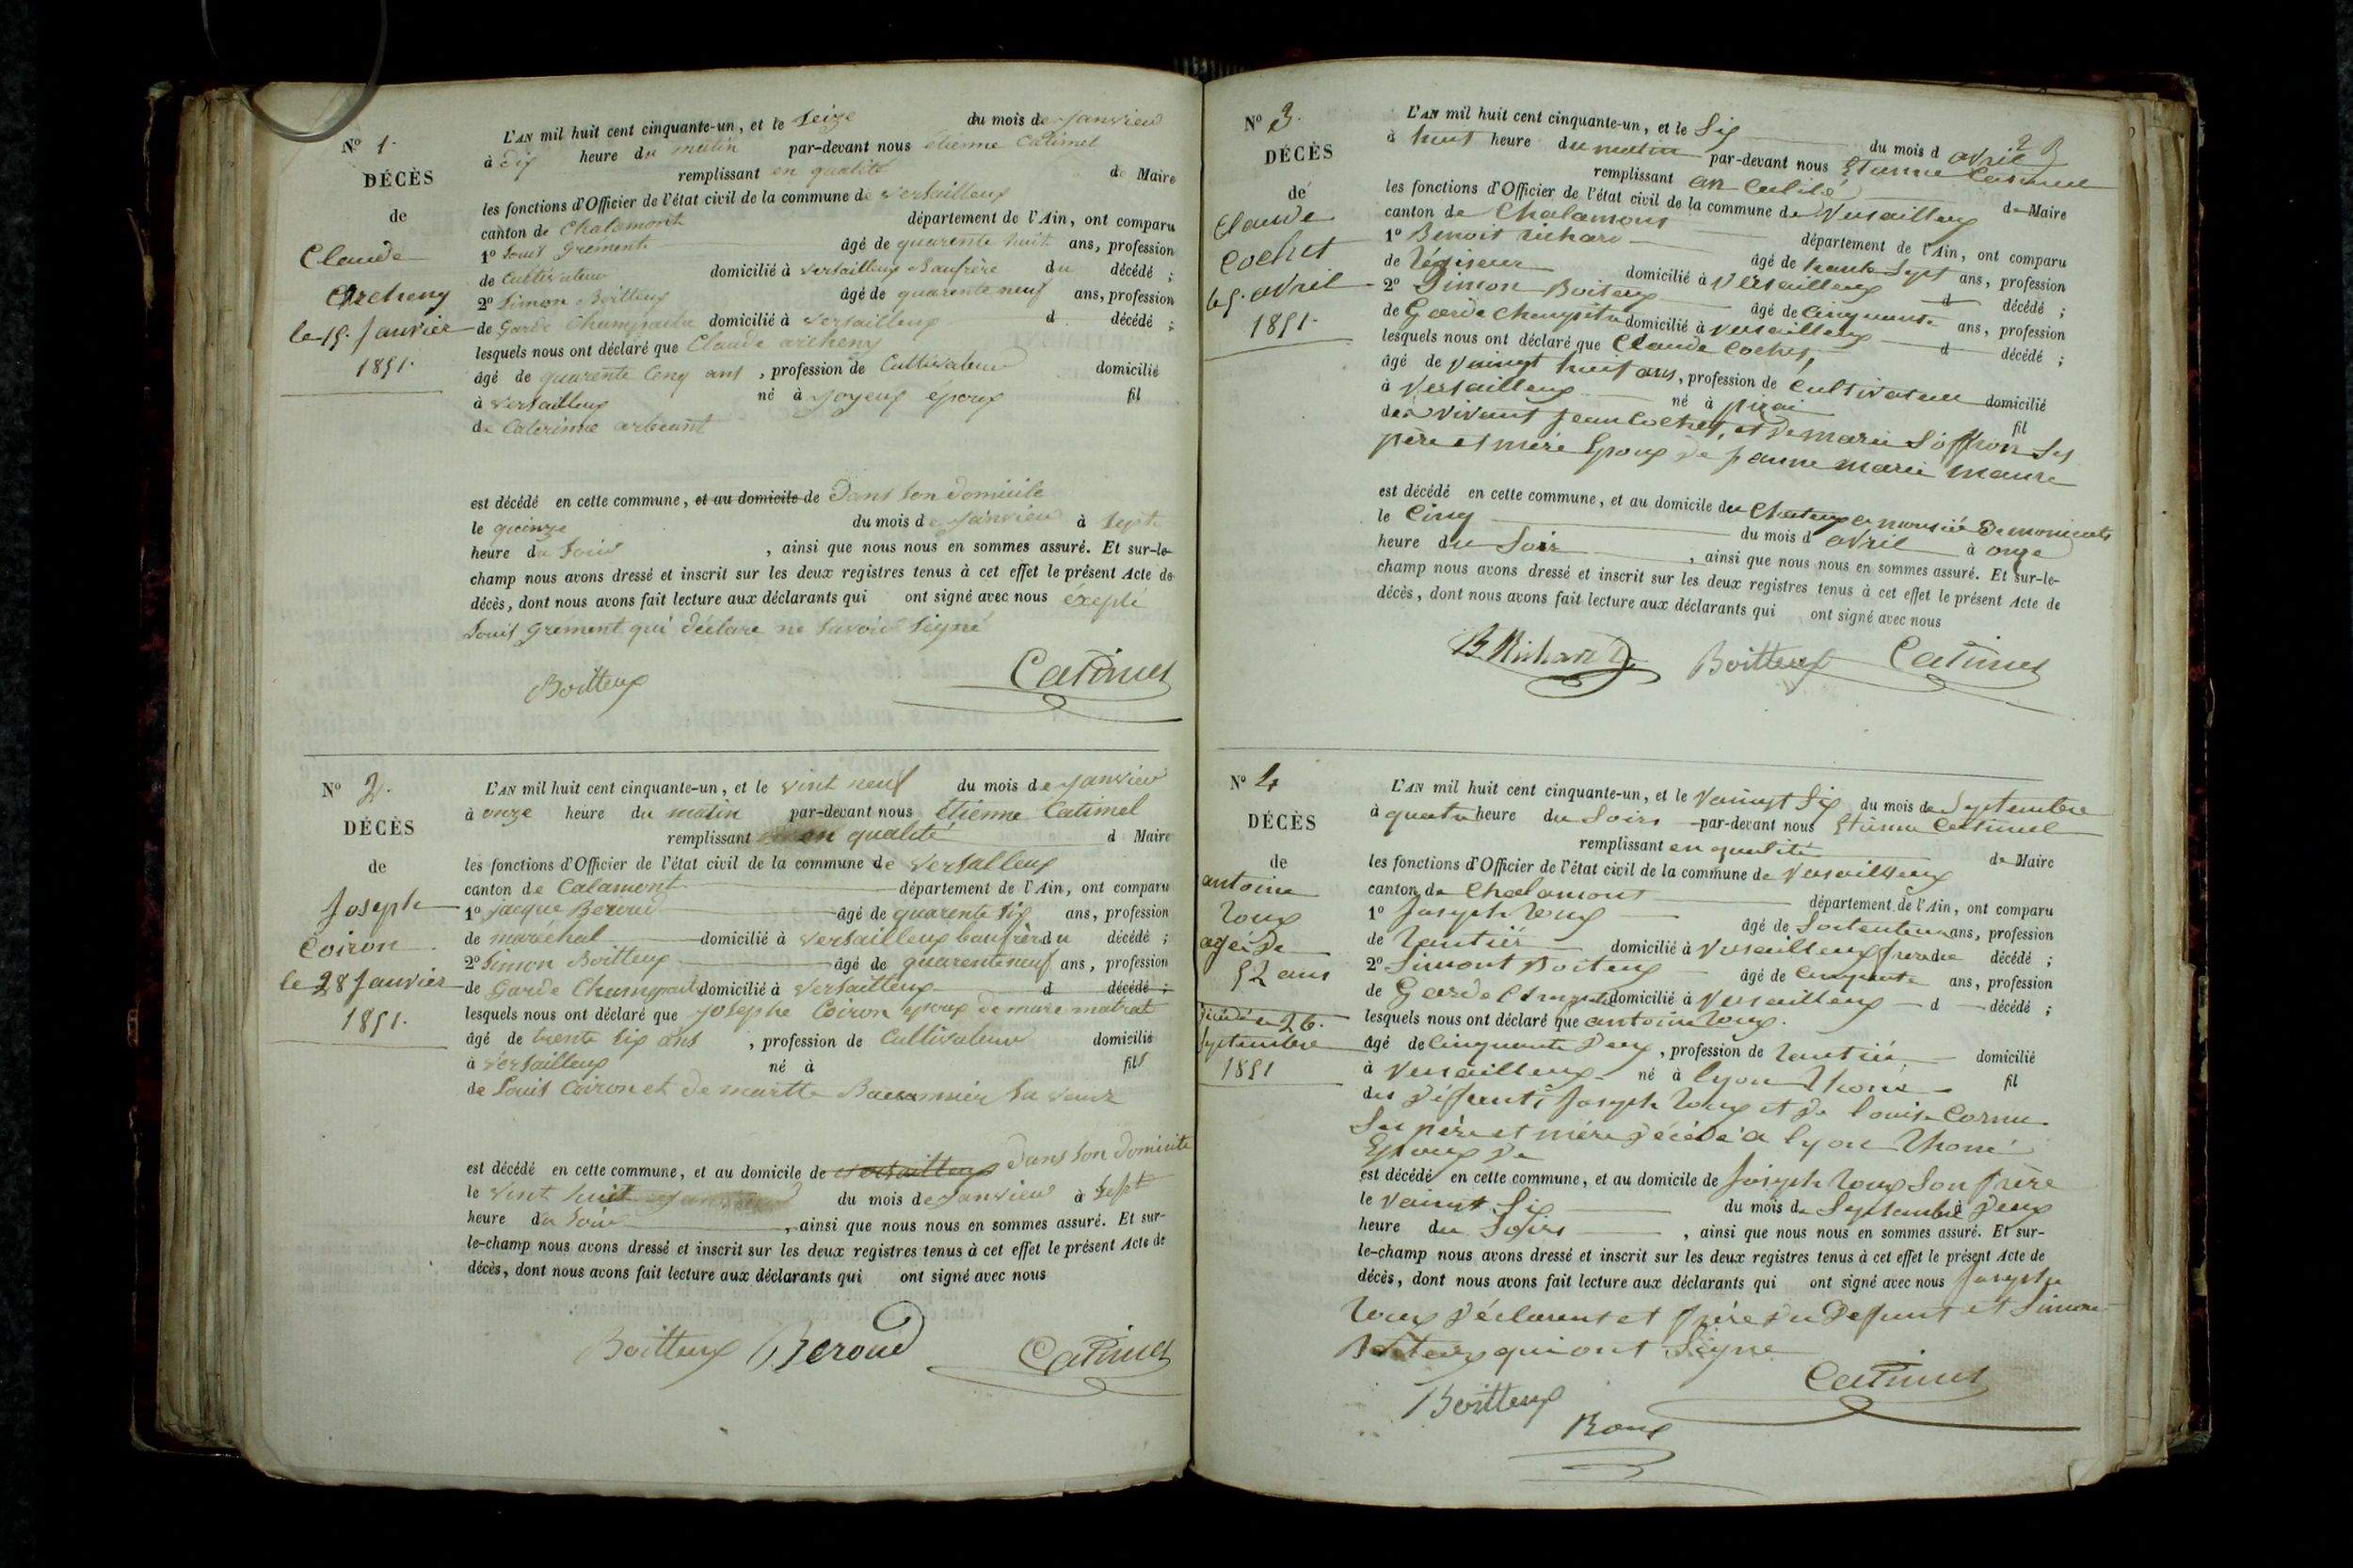 N° 1.
DÉCÈS
de
Claude
Archeny
le 15. Janvier
1851.
L'AN mil huit cent cinquante-un, et le Seize du mois de Janvier
à Dix heure du matin par-devant nous étienne Catimel
remplissant en qualité de Maire
les fonctions d'Officier de l'état civil de la commune de Versailleux
canton de Chalamont département de l'Ain, ont comparu
1° Louis Grement âgé de quarente huit ans, profession
de Cultivateur domicilié à Versailleux Baufrère du décédé ;
2° Simon Boitteux âgé de quarente neuf ans, profession
de Garde Champaitre domicilié à Versailleux d décédé ;
lesquels nous ont déclaré que Claude archeny
âgé de quarente Cenq ans , profession de Cultivateur domicilié
à Versailleux né à Joyeux époux fil
de Caterinne
est décédé en cette commune, et au domicile de Dans Son domicile
le quinze du mois de Janvier à Sept
heure du Soir , ainsi que nous nous en sommes assuré. Et sur-le-
champ nous avons dressé et inscrit sur les deux registres tenus à cet effet le présent Acte de
décès, dont nous avons fait lecture aux déclarants qui ont signé avec nous éxepté
Louis Grement qui déclare ne Savoir Signé
Boitteux Catimel
N° 2.
DÉCÈS
de
Joseph
Coiron
le 28 Janvier
1851.
L'AN mil huit cent cinquante-un, et le vint neuf du mois de Janvier
à onze heure du matin par-devant nous Etienne Catimel
remplissant en qualité d Maire
les fonctions d'Officier de l'état civil de la commune de Versalleux
canton de Calamont département de l'Ain, ont comparu
1° jacque Beroud âgé de quarente Six ans, profession
de maréchal domicilié à Versailleux baufrère du décédé ;
2° Simon Boitteux âgé de quarenteneuf ans, profession
de Garde Champaitre domicilié à Versailleux d décédé ;
lesquels nous ont déclaré que Josephe Coiron epoux de marie matrat
âgé de trente Six ans , profession de Cultivateur domicilié
à Versailleux né à fils
de Louis Coiron et de martte
est décédé en cette commune, et au domicile de Versailleux Dans Son Domicile
le vint huit du mois de Janvier à Sept
heure du Soir , ainsi que nous nous en sommes assuré. Et sur-
le-champ nous avons dressé et inscrit sur les deux registres tenus à cet effet le présent Acte de
décès, dont nous avons fait lecture aux déclarants qui ont signé avec nous
Boitteux Beroud Catimel
N° 3.
DÉCÈS
de
Claude
Cochet
le 5. avril
1851.
L'AN mil huit cent cinquante-un, et le Six du mois d avril
à huit heure du matin par-devant nous Etienne Catimel
remplissant an Calité de Maire
les fonctions d'Officier de l'état civil de la commune de Versailleux
canton de Chalamont département de l'Ain, ont comparu
1° Benoit Richard âgé de trante Sept ans, profession
de Régisseur domicilié à Versailleux d décédé ;
2° Simon Boiteux âgé de Cinquante ans, profession
de Garde Champêtre domicilié à Versailleux d décédé ;
lesquels nous ont déclaré que Claude Cochet,
âgé de vaingt huit ans, profession de Cultivateur domicilié
à Versailleux né à fil
des vivant Jean Cochet, et de marie Soffron Ses
père et mère Epoux de jeanne marie
est décédé en cette commune, et au domicile du Chateux a monsieur
le Cinq du mois d avril à onze
heure du Soir , ainsi que nous nous en sommes assuré. Et sur-le-
champ nous avons dressé et inscrit sur les deux registres tenus à cet effet le présent Acte de
décès, dont nous avons fait lecture aux déclarants qui ont signé avec nous
B Richard Boitteux Catimel
N° 4
DÉCÈS
de
antoine
Roux
agé de
52 ans
décédé le 26.
Septembre
1851
L'AN mil huit cent cinquante-un, et le vaingt Six du mois de Septembre
à quatre heure du Soirs par-devant nous Etienne Catimel
remplissant en qualité de Maire
les fonctions d'Officier de l'état civil de la commune de Versailleux
canton de Chalamont département de l'Ain, ont comparu
1° Joseph Roux âgé de ans, profession
de Rantiér domicilié à Versailleux frere du décédé ;
2° Simont Boiteux âgé de Cinquante ans, profession
de Garde Champetre domicilié à Versailleux d décédé ;
lesquels nous ont déclaré que antoine Roux.
âgé de Cinquante Deux , profession de Rantiér domicilié
à Versailleux né à lyon Rhone fil
des Deffunts Joseph Roux et de louise Cornu
Ses père et mére Décédé a lyon Rhone
Epoux De
est décédé en cette commune, et au domicile de Joseph Roux Son frère
le vaingt Six du mois de Septembre à Deux
heure du Soirs , ainsi que nous nous en sommes assuré. Et sur-
le-champ nous avons dressé et inscrit sur les deux registres tenus à cet effet le présent Acte de
décès, dont nous avons fait lecture aux déclarants qui ont signé avec nous Joseph
Roux Déclarent et frère du Defunt et Simon
Boiteux qui ont Signe
Boitteux Catimel
Roux